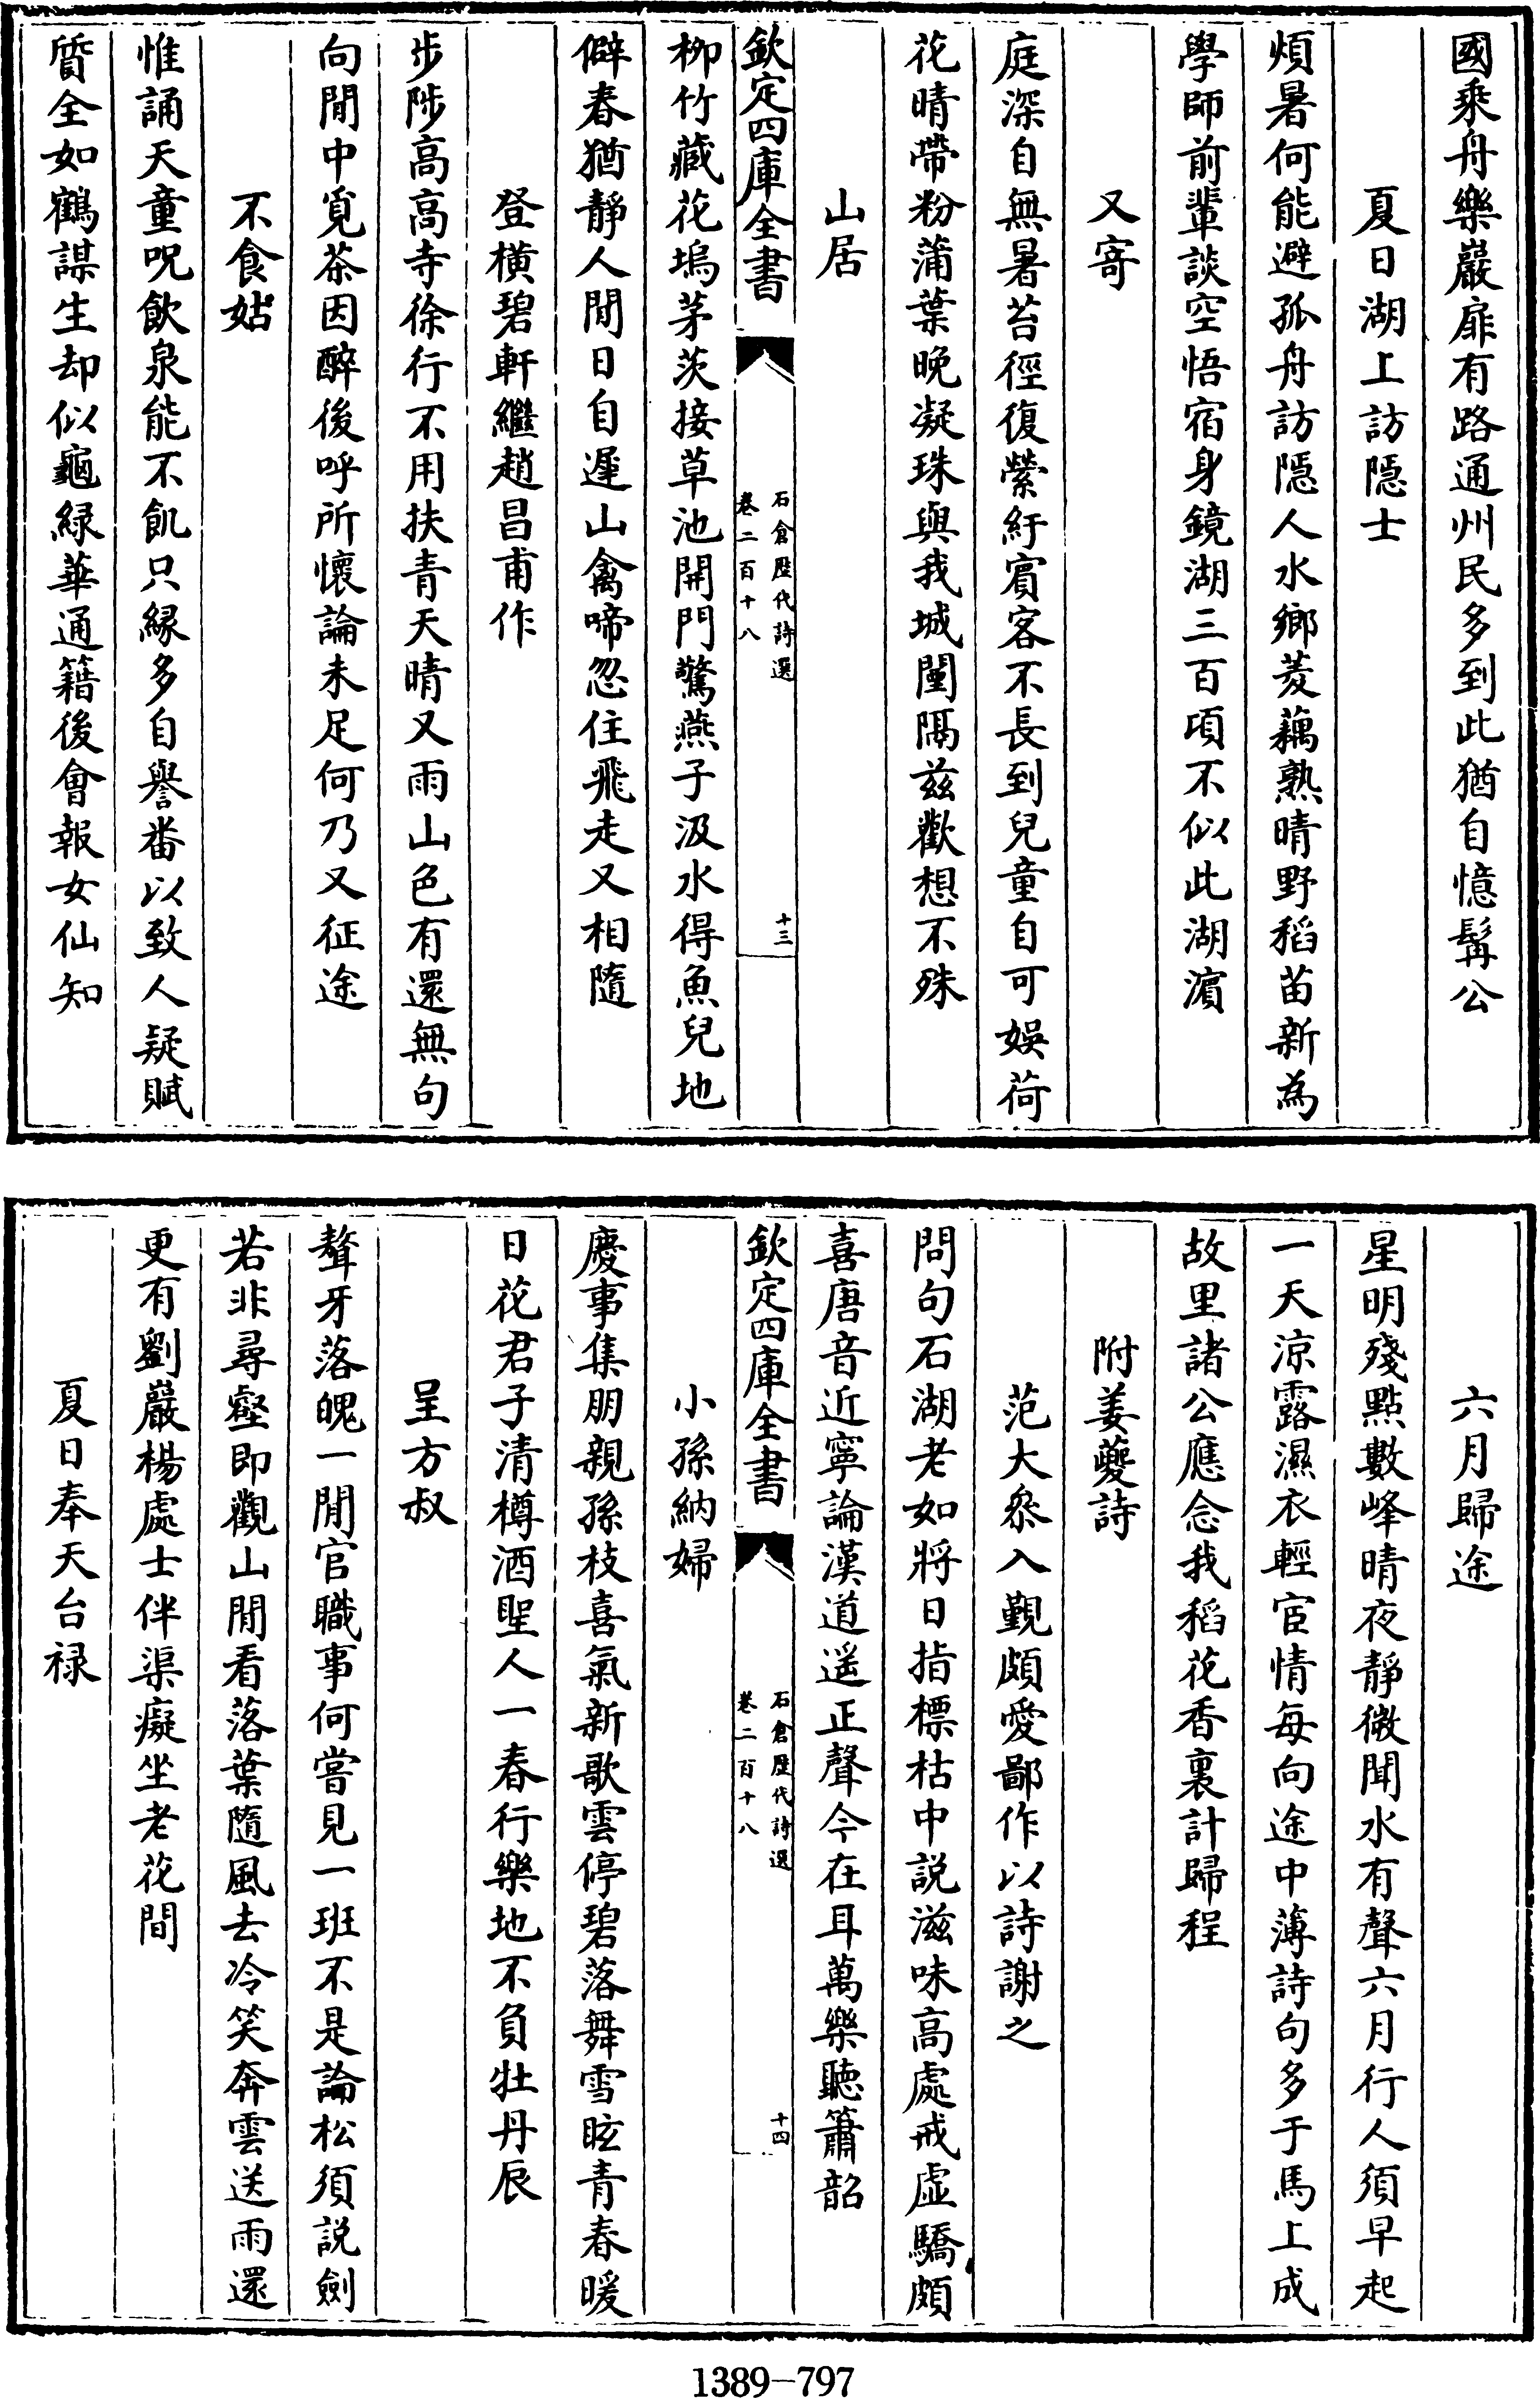 國乘舟樂巖扉有路通州民多到此猶自憶髯公
夏日湖上訪隱士
煩暑何能避孤舟訪隱人水鄉菱藕熟晴野稻苗新為
學師前輩談空悟宿身鏡湖三百頃不似此湖濵
又寄
庭深自無暑苔徑復縈紆賔客不長到兒童自可娛荷
花晴帶粉蒲葉晚凝珠與我城闉隔兹歡想不殊
山居
欽定四庫全書
石倉歴代詩選
卷二百十八
十三
柳竹藏花塢茅茨接草池開門驚燕子汲水得魚兒地
僻春猶靜人閒日自遲山禽啼忽住飛走又相隨
登横碧軒繼趙昌甫作
步陟高高寺徐行不用扶青天晴又雨山色有還無句
向閒中覓茶因醉後呼所懷論未足何乃又征途
不食姑
惟誦天童呪飲泉能不飢只縁多自譽畨以致人疑賦
質全如鶴謀生却似龜緑華通籍後會報女仙知
六月歸途
星明殘點數峰晴夜靜微聞水有聲六月行人須早起
一天涼露濕衣輕宦情每向途中薄詩句多于馬上成
故里諸公應念我稻花香裏計歸程
附姜夔詩
范大叅入覲頗愛鄙作以詩謝之
問句石湖老如將日指標枯中説滋味高處戒虛驕頗
喜唐音近寧論漢道遥正聲今在耳萬樂聽簫韶
欽定四庫全書
石倉歴代詩選
卷二百十八
十四
小孫納婦
慶事集朋親孫枝喜氣新歌雲停碧落舞雪眩青春暖
日花君子清樽酒聖人一春行樂地不負牡丹辰
呈方叔
聱牙落魄一閒官職事何嘗見一班不是論松須説劍
若非尋壑即觀山閒看落葉隨風去冷笑奔雲送雨還
更有劉巖楊處士伴渠癡坐老花間
夏日奉天台禄
1389-797